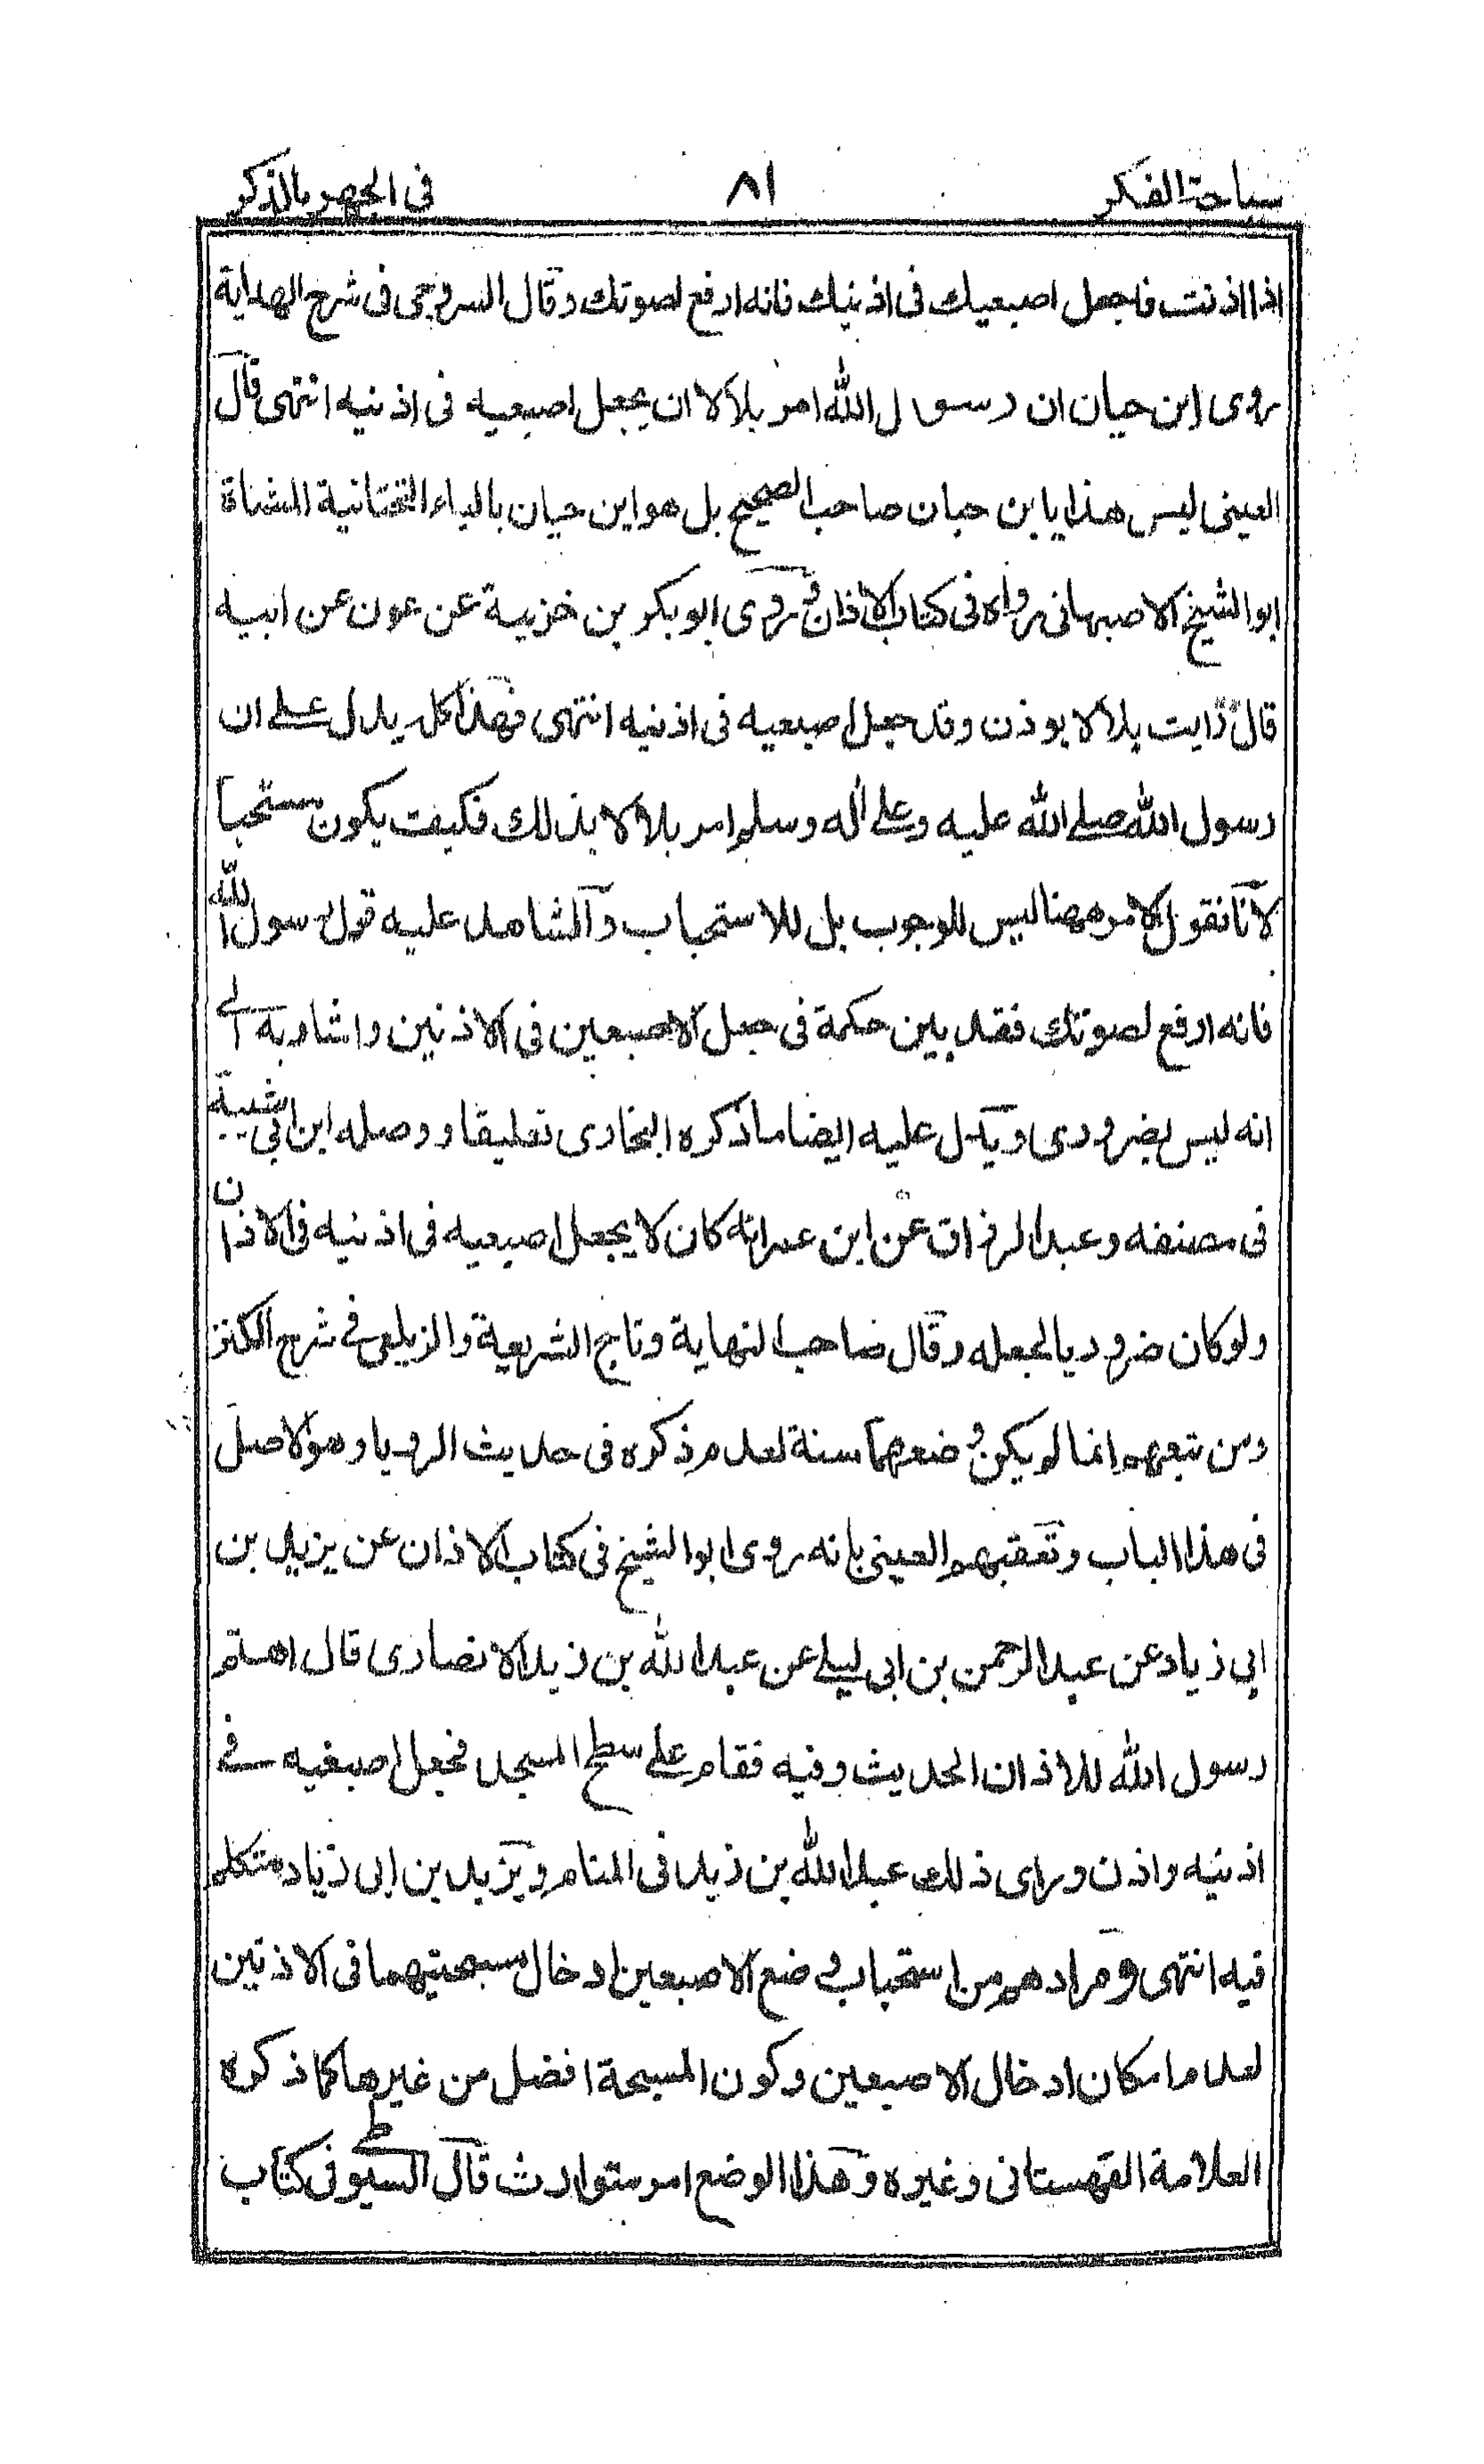 سباحة الفكر ٨١ فى الجهر بالذكر
اذا اذنت فاجعل اصبعيك فى اذنيك فانه ارفع لصوتك وقال السروجى فى شرح الهداية
روى ابن حيان ان رسول الله امر بلالا ان يجعل اصبعيه فى اذنيه انتهى قال
العينى ليس هذا يا بن حبان صاحب الصحيح بل هو ابن حيان بالياء التحتانية المثناة
ابو الشيخ الاصبهانى رواه فى كتاب الاذان وروى ابو بكر بن خزيمة عن عون عن ابيه
قال رايت بلالا يوذن وقد جعل اصبعيه فى اذنيه انتهى فهذا كله يدل على ان
رسول الله صلے الله عليه وعلے اله وسلم امر بلالا بذلك فكيف يكون مستحبا
لانا نقول الامر ههنا ليس للوجوب بل للاستحباب والشاهد عليه قول رسول الله
فانه ارفع لصوتك فقد بين حكمة فى جعل الاصبعين فى الاذنين واشار به الے
انه ليس بضرورى ويدل عليه ايضا ما ذكره البخارى تعليقا ووصله ابن ابى شيبة
فى مصنفه وعبد الرزاق عن ابن عمر انه كان لا يجعل اصبعيه فى اذنيه فى الاذان
ولو كان ضروريا لجعله وقال صاحب النهاية وتاج الشريعة والزيلعى فے شرح الكنز
ومن تبعهم انما لم يكن وضعهما سنة لعدم ذكره فى حديث الرويا وهو الاصل
فى هذا الباب وتعقبهم العينى بانه روى ابو الشيخ فى كتاب الاذان عن يزيد بن
ابي زياد عن عبد الرحمن بن ابى ليلے عن عبد الله بن زيد الانصارى قال اهتم
رسول الله للاذان الحديث وفيه فقام علے سطح المسجد فجعل اصبعيه فے
اذنيه واذن وراى ذلك عبد الله بن زيد فى المنام ويزيد بن ابى زياد متكلم
فيه انتهى ومرادهم من استحباب وضع الاصبعين ادخال مسبحتيهما فى الاذنين
لعدم امكان ادخال الاصبعين وكون المسبحة افضل من غيرها كما ذكره
العلامة القهستانى وغيره وهذا الوضع امر متوارث قال السيوطے فى كتاب